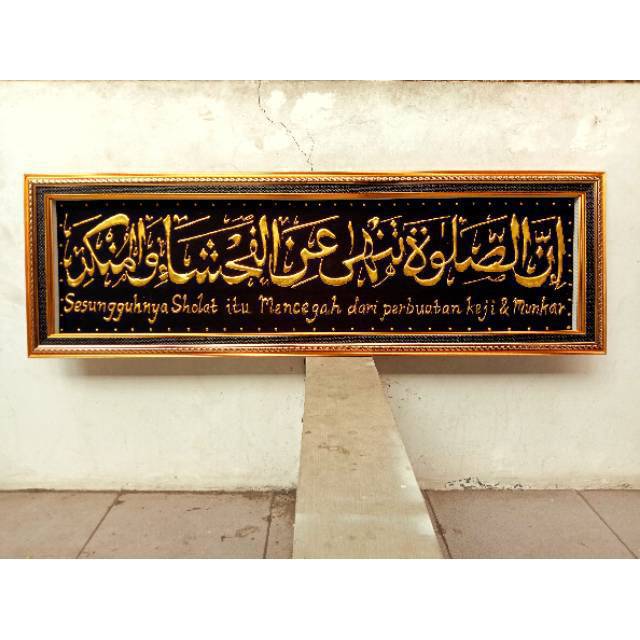 إِنَّ الصَّلوٰةَ تَنْهٰى عَنِ الْفَحْشَاءِ وَالْمُنْكَرِ
Sesungguhnya Sholat itu Mencegah dari perbuatan keji & Munkar